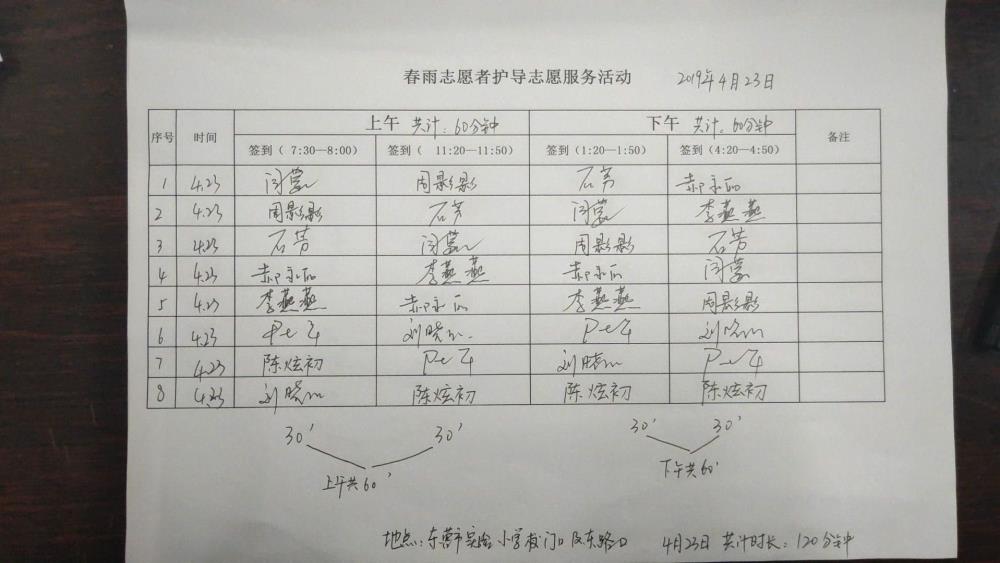 春雨志愿者护导志愿服务活动 2019年4月23日
序号 时间 上午 共计:60分钟 下午 共计:60分钟 备注
签到( 7:30—8:00) 签到( 11:20—11:50) 签到(1:20—1:50) 签到(4:20—4:50)
1 4.23 闫蒙 周影影 石芳
2 4.23 周影影 石芳 闫蒙 李燕燕
3 4.23 石芳 闫蒙 周影影 石芳
4 4.23 李燕燕 闫蒙
5 4.23 李燕燕 李燕燕 周影影
6 4.23
7 4.23 陈炫初
8 4.23 陈炫初 陈炫初 陈炫初
30' 30' 30' 30'
上午共60' 下午共60'
地点:东营市实验小学校门口及东路口 4月23日 共计时长:120分钟